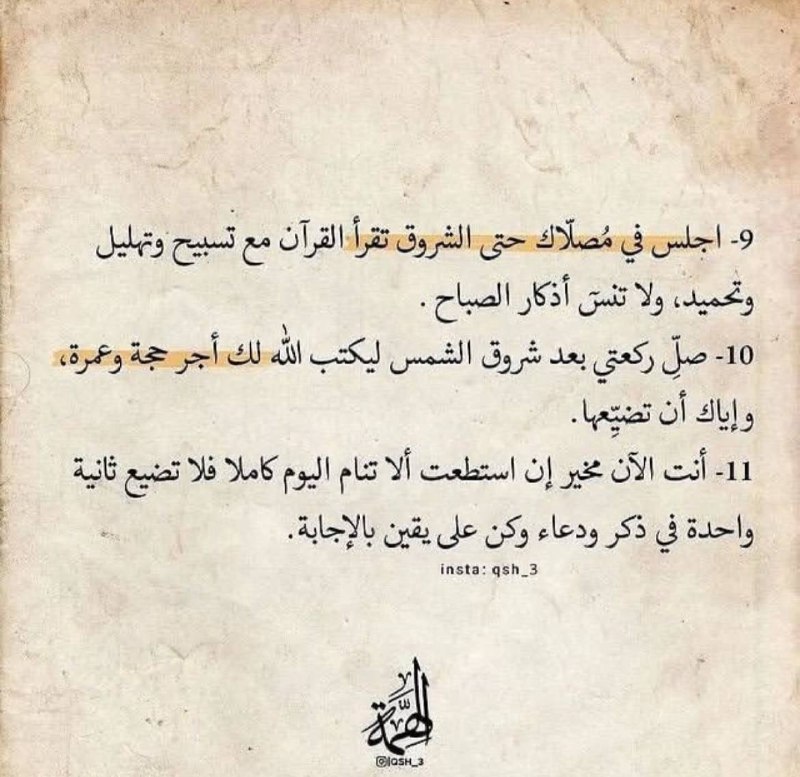 9- اجلس في مُصلّاك حتى الشروق تقرأ القرآن مع تسبيح وتهليل
وتحميد، ولا تنسَ أذكار الصباح .
10- صلِّ ركعتي بعد شروق الشمس ليكتب الله لك أجر حجة وعمرة،
وإياك أن تضيِّعها.
11- أنت الآن مخير إن استطعت ألا تنام اليوم كاملا فلا تضيع ثانية
واحدة في ذكر ودعاء وكن على يقين بالإجابة.
insta: qsh_3
الهِمَّة
@QSH_3